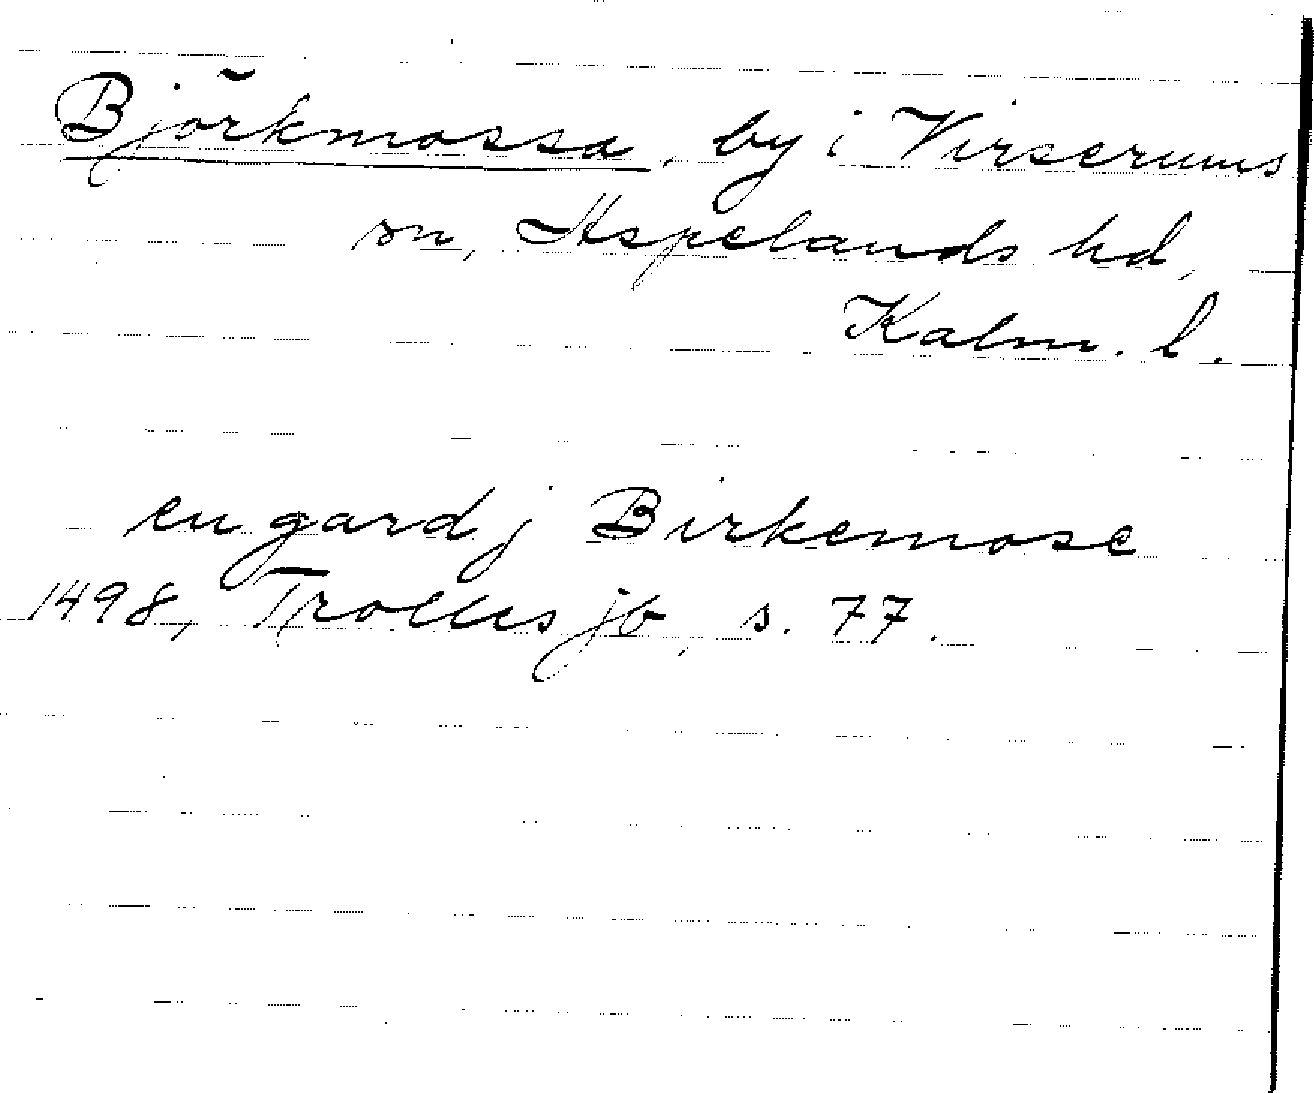 Björkmossa, by i Virserums
sn, Aspelands hd,
Kalm. l.
en gard j Birkemose
1498, Trolles jb, s. 77.